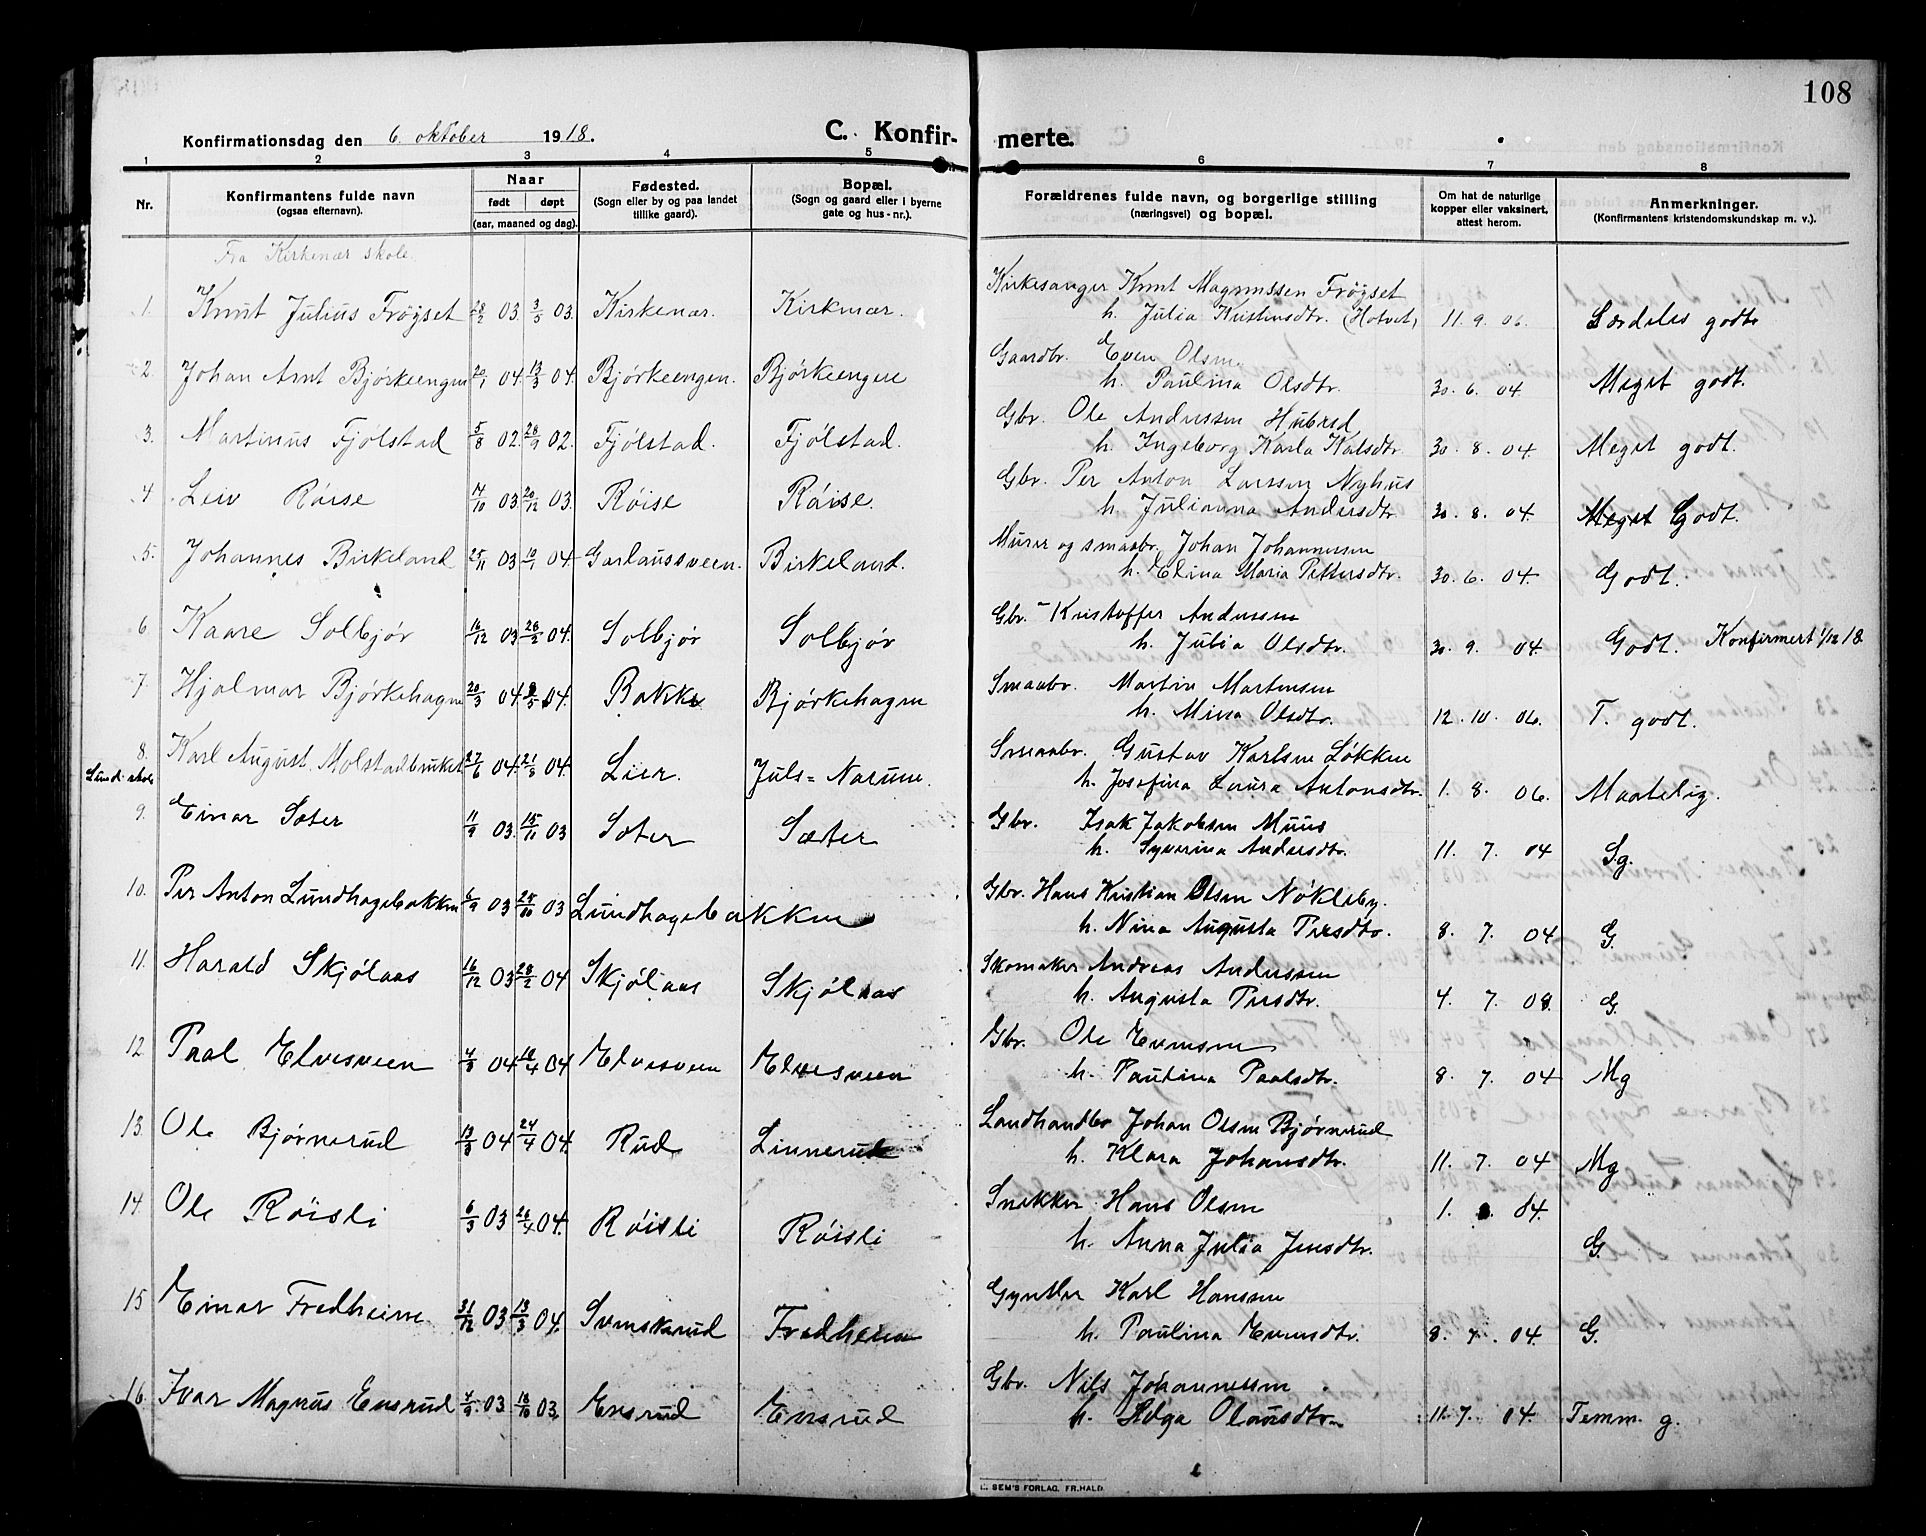 108
Konfirmationsdag den 6. oktober 1918.
C. Konfir- merte.
1 2 3 4 5 6 7 8
Nr.
Konfirmantens fulde navn
(ogsaa efternavn).
Naar
født døpt
(aar, maaned og dag).
Fødested.
(Sogn eller by og paa landet
tillike gaard).
Bopæl.
(Sogn og gaard eller i byerne
gate og hus-nr.).
Forældrenes fulde navn, og borgerlige stilling
(næringsvei) og bopæl.
Om hat de naturlige
kopper eller vaksinert,
attest herom.
Anmerkninger.
(Konfirmantens kristendomskundskap m. v.).
Fra Kirkenær skole.
Kirkesanger Knut Magnussen Frøyset
1. Knut Julius Frøyset 28/2 03. 3/5 03. Kirkenær. Kirkenær.
h. Julia Kristensdtr. (Hotvet) 11. 9. 06. Særdeles godt
Gaardbr. Even Olsen
2. Johan Arnt Bjørkeengen 20/1 04. 13/3 04. Bjørkeengen. Bjørkeengen
h. Paulina Olsdtr. 30. 6. 04. Meget godt.
Gbr. Ole Anderssen Hubred
3. Martinus Fjølstad 5/8 02. 28/9 02. Fjølstad. Fjølstad.
h. Ingeborg Karla Kalsdtr. 30. 8. 04. Meget godt.
Gbr. Per Anton Larssen Nyhus
4 Leiv Røise 7/10 03. 20/12 03. Røise Røise.
h. Julianna Andersdtr. 30. 8. 04. Meget Godt.
Murer og smaabr. Johan Johannessen
5. Johannes Birkeland 25/11 03 10/1 04. Garlaussveen. Birkeland.
h. Elina Maria Pettersdtr. 30. 6. 04. Godt.
Gbr. Kristoffer Anderssen
6 Kaare Solbjør 16/12 03 28/2 04. Solbjør Solbjør
h. Julia Olsdtr. 30. 9. 04. Godt. Konfirmert 1/12 18
Smaabr. Martin Martinsen
7. Hjalmar Bjørkehagen 20/3 04. 04. Bakke Bjørkehagen
h. Mina Olsdtr. 12. 10. 06. T. godt.
Smaabr. Gustav Karlsen Løkken
8. Karl August Molstadbruket 27/6 04. 21/8 04. Lier. Juls= Narum.
h. Josefina Laura Antonsdtr. 1. 8. 06. Maatelig.
Lund skole
Gbr. Isak Jakobsen Muus
9. Einar Sæter 11/9 03. 15/11 03 Sæter Sæter
h. Syverina Andersdtr. 11. 7. 04 S.g.
Gbr. Hans Kristian Olsen Nøkleby.
10. Per Anton Lundhagebakken 6/9 03 25/10 03 Lundhagebakken
h. Nina Augusta Persdtr. 8. 7. 04 G.
Skomaker Andreas Anderssen
11. Harald Skjølaas 16/12 03 28/2 04 Skjølaas Skjølaas
h. Augusta Persdtr. 4. 7. 08. G.
Gbr. Ole Evensen
12 Paal Elvesveen 4/3 04 10/4 04 Elvesveen Elvesveen
h. Paulina Paalsdtr. 8. 7. 04 Mg
Landhandler Johan Olsen Bjørnerud
13. Ole Bjørnerud 13/3 04 24/4 04. Rud Linnerud
h. Klara Johansdtr. 11. 7. 04 Mg
Snekker Hans Olsen 1. 04.
14. Ole Røisli 6/3 03 26/4 04. Røisli Røisli
h. Anna Julia Jensdtr. G.
Karl Hanssen
15 Einar Fredheim 31/12 03 13/3 04. Svenskerud Fredheim
h. Paulina Evensdtr. 8. 7. 04. G.
Gbr. Nils Johannessen
16. Ivar Magnus Ensrud 4/9 03 18/10 03. Ensrud Ensrud
h. Helga Olausdtr. 11. 7. 04. Temm. g.
SEM'S FORLAG, FR.HALD.